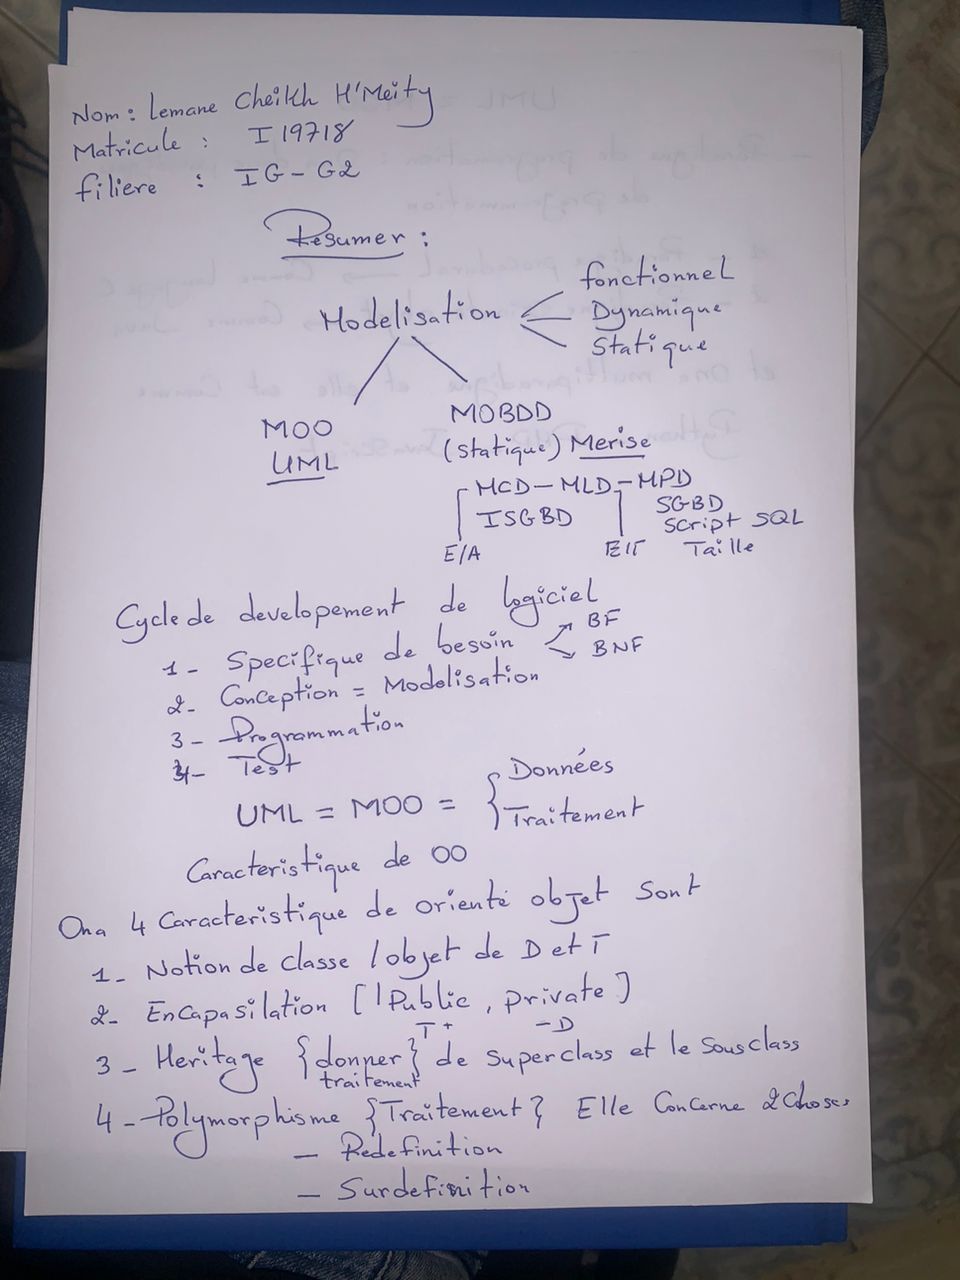 Nom : Lemane Cheikh H'Meity
Matricule : I19718
filiere : IG - G2
Résumer :
Modelisation
fonctionnel
Dynamique
Statique
MOO
UML
MOBDD
(statique) Merise
MCD - MLD - MPD
ISGBD
SGBD
Script SQL
Taille
E/A
Cycle de developement de logiciel
1 - Specifique de besoin
BF
BNF
2 - Conception = Modelisation
3 - Programmation
4 - Test
UML = MOO = { Données
Traitement
Caracteristique de OO
Ona 4 Caracteristique de orienté objet Sont
1 - Notion de classe / objet de D et T
2 - Encapasilation [ | Public , private ]
T + - D
3 - Heritage { donner } de Superclass et le Sousclass
traitement
4 - Polymorphisme { Traitement } Elle Concerne 2 Choses
- Redefinition
- Surdefinition